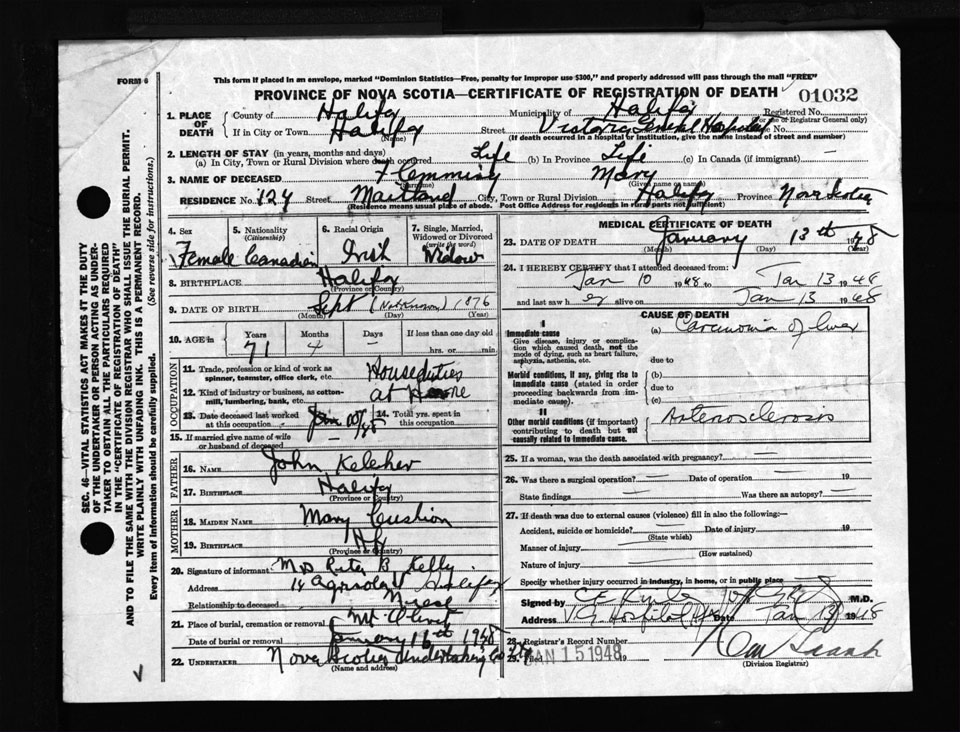 FORM 6
This form if placed in an envelope, marked "Dominion Statistics—Free, penalty for improper use $300," and properly addressed will pass through the mail "FREE"
PROVINCE OF NOVA SCOTIA—CERTIFICATE OF REGISTRATION OF DEATH 01032
SEC. 46—VITAL STATISTICS ACT MAKES IT THE DUTY
OF THE UNDERTAKER OR PERSON ACTING AS UNDER-
TAKER TO OBTAIN ALL THE PARTICULARS REQUIRED
IN THE "CERTIFICATE OF REGISTRATION OF DEATH"
AND TO FILE THE SAME WITH THE DIVISION REGISTRAR WHO SHALL ISSUE THE BURIAL PERMIT.
WRITE PLAINLY WITH UNFADING INK. THIS IS A PERMANENT RECORD.
Every item of information should be carefully supplied. (See reverse side for instructions.)
1. PLACE OF DEATH County of Halifax Municipality of Halifax Registered No.
(For use of Registrar General only)
If in City or Town Halifax Street Victoria General Hospital No.
(Name) (If death occurred in a hospital or institution, give the name instead of street and number)
2. LENGTH OF STAY (in years, months and days)
(a) In City, Town or Rural Division where death occurred Life (b) In Province Life (c) In Canada (if immigrant) —
3. NAME OF DECEASED Flemming Mary
(Surname) (Given name or names)
RESIDENCE No. 124 Street Maitland City, Town or Rural Division Halifax Province Nova Scotia
(Residence means usual place of abode. Post Office Address for residents in rural parts not sufficient)
4. Sex Female
5. Nationality (Citizenship) Canadian
6. Racial Origin Irish
7. Single, Married, Widowed or Divorced (write the word) Widow
8. BIRTHPLACE Halifax
(Province or Country)
9. DATE OF BIRTH Sept (Not Known) 1876
(Month) (Day) (Year)
10. AGE in Years 71 Months 4 Days — If less than one day old
hrs. or min.
OCCUPATION
11. Trade, profession or kind of work as spinner, teamster, office clerk, etc. Houseduties
12. Kind of industry or business, as cotton-mill, lumbering, bank, etc. at Home
13. Date deceased last worked at this occupation
14. Total yrs. spent in this occupation
15. If married give name of wife or husband of deceased
FATHER
16. NAME John Kelcher
17. BIRTHPLACE Halifax
(Province or Country)
MOTHER
18. MAIDEN NAME Mary Cushion
19. BIRTHPLACE Hfx
(Province or Country)
20. Signature of informant Peter B Kelly
Address 14 Halifax
Relationship to deceased
21. Place of burial, cremation or removal Mt Olivet
Date of burial or removal January 16th 1948
22. UNDERTAKER Nova Scotia Undertaking Co
(Name and address)
MEDICAL CERTIFICATE OF DEATH
23. DATE OF DEATH January 13th 1948
(Month) (Day) (Year)
24. I HEREBY CERTIFY that I attended deceased from:
Jan 10 1948 to Jan 13 1948
and last saw her alive on Jan 13 1948
CAUSE OF DEATH
I
Immediate cause
Give disease, injury or complication which caused death, not the mode of dying, such as heart failure, asphyxia, asthenia, etc.
(a) Carcinoma of liver
due to
Morbid conditions, if any, giving rise to immediate cause (stated in order proceeding backwards from immediate cause).
(b)
due to
(c)
II
Other morbid conditions (if important) contributing to death but not causally related to immediate cause.
Arteriosclerosis
25. If a woman, was the death associated with pregnancy? —
26. Was there a surgical operation? — Date of operation — 19
State findings — Was there an autopsy? —
27. If death was due to external causes (violence) fill in also the following:—
Accident, suicide or homicide? Date of injury 19
(State which)
Manner of injury
(How sustained)
Nature of injury
Specify whether injury occurred in industry, in home, or in public place
Signed by M.D.
Address V.G. Hospital Date Jan 13 1948
28. Registrar's Record Number
29. JAN 15 1948
(Division Registrar)